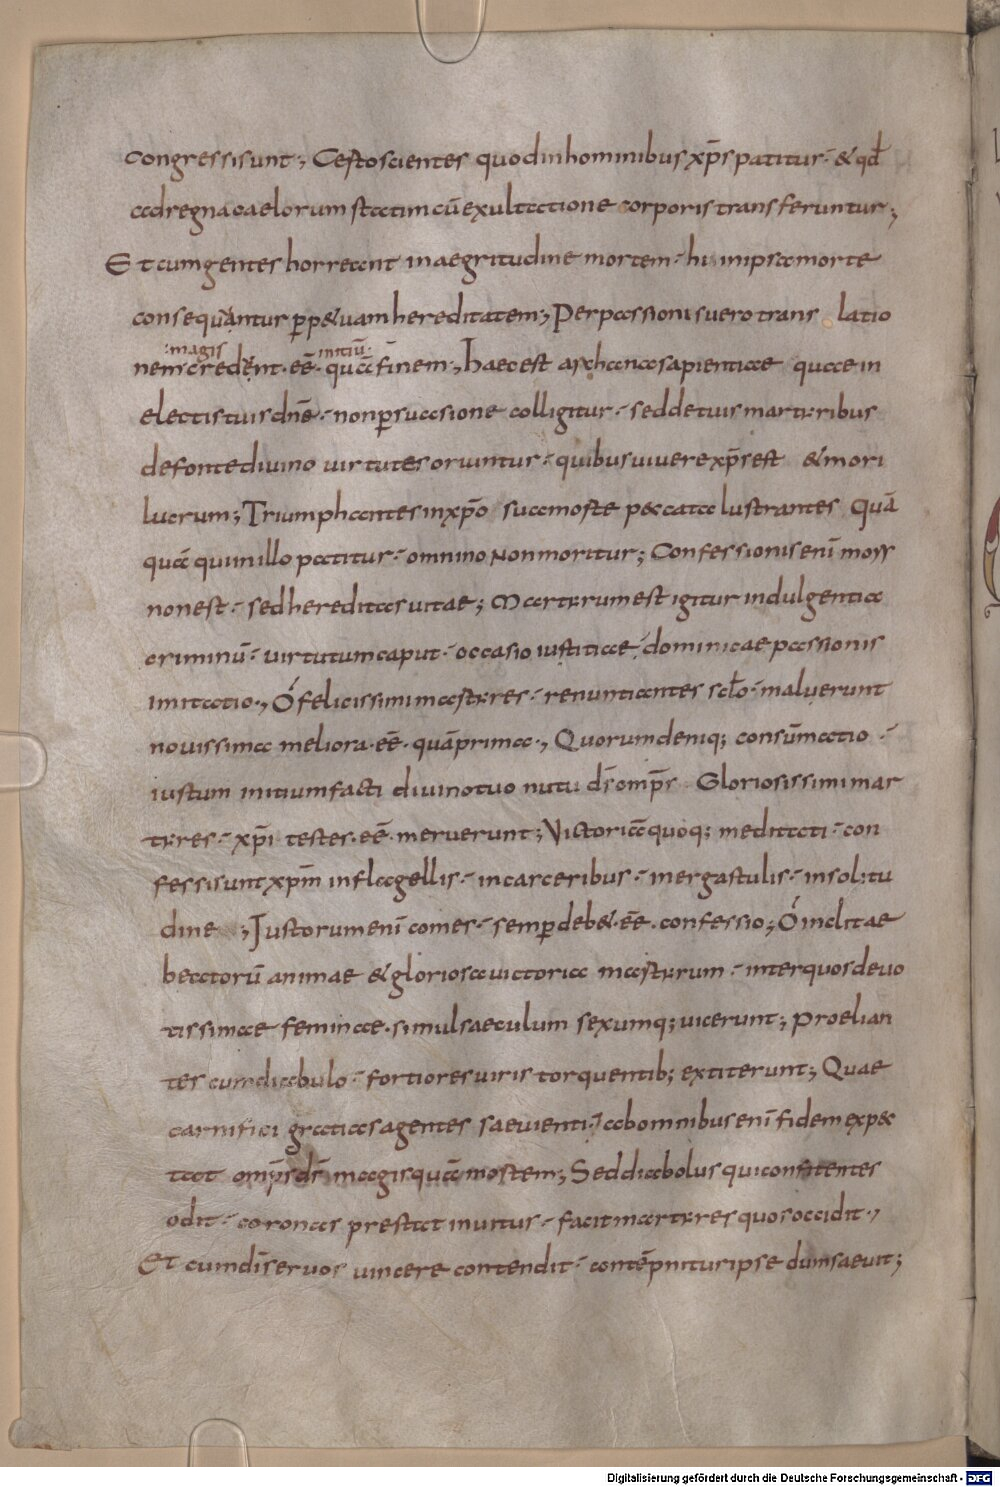 congressi sunt; Certo scientes quod in hominibus xp̄s patitur· & qđ
ad regna caelorum statim cū exultatione corporis transferuntur;
Et cum gentes horreant in aegritudine mortem· hi in ipsa morte
consequantur pp&uam hereditatem; Per passionis uero trans latio
magis initiū
nem credent· eē· quā finem; Haec est archana sapientiae quae in
electis tuis dn̄e· non p suasione colligitur· sed de tuis martyribus
de fonte diuino uirtutes oriuntur· quibus uiuere xp̄s est & mori
lucrum; Triumphantes in xp̄o sua morte peccata lustrantes Quā
quā qui in illo patitur· omnino non moritur; Confessionis enī mors
non est· sed hereditas uitae; Martyrum est igitur indulgentia
criminū· uirtutum caput· occasio iustitiae· dominicae passionis
imitatio; Ó felicissimi martyres· renuntiantes scl̄o· maluerunt
nouissima meliora· eē· quā prima; Quorum deniq; consūmatio·
iustum initium facti diuino tuo nutu ds̄ omp̄s Gloriosissimi mar
tyres· xp̄i testes· eē· meruerunt; Victoriā quoq; meditati· con
fessi sunt xp̄m in flagellis· in carceribus· in ergastulis· in solitu
dine ; Iustorum enī comes· semp deb& eē· confessio; Ó inclitae
beatorū animae & gloriosa uictoria martyrum· inter quos deuo
tissimae feminae· simul saeculum sexumq; uicerunt; Proelian
tes cum diabulo· fortiores uiris torquentib; extiterunt; Quae
carnifici gratias agentes saeuienti· ab omnibus enī fidem expec
tat omp̄s ds̄ magis quā mortem; Sed diabolus qui confitentes
odit· coronas prestat inuitus· facit martyres quos occidit;
Et cum dī seruos uincere contendit· contēpnitur ipse dum saeuit;
Digitalisierung gefördert durch die Deutsche Forschungsgemeinschaft - DFG